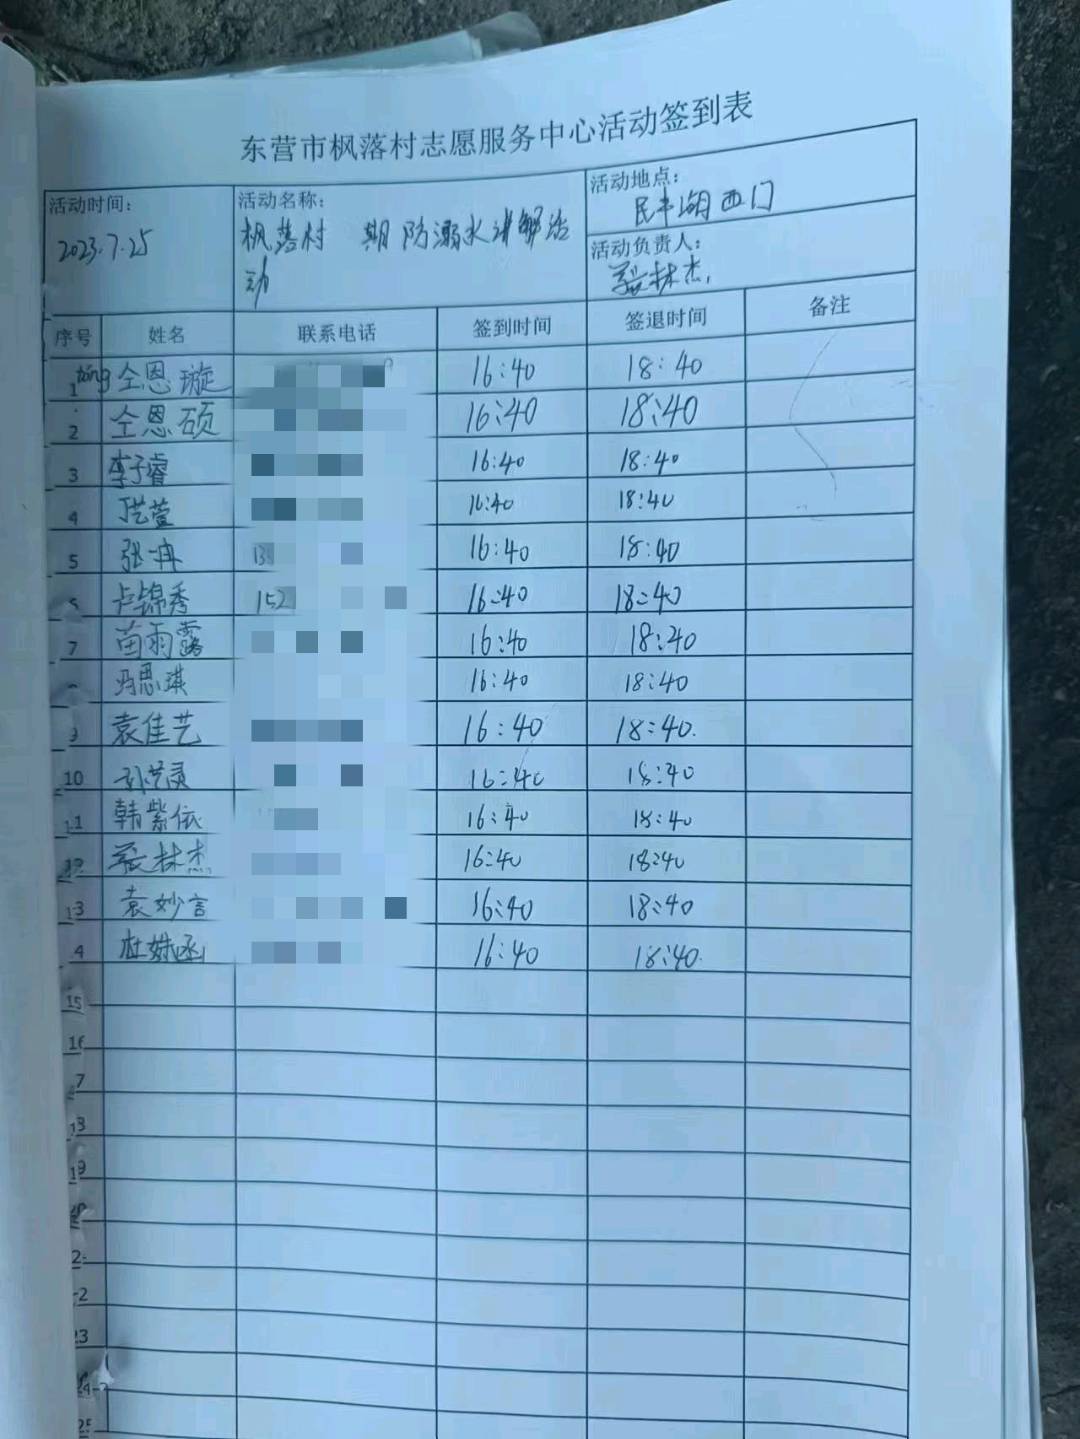 东营市枫落村志愿服务中心活动签到表
活动时间：
2023.7.25
活动名称：
枫落村 期防溺水讲解活
动
活动地点：
民丰湖西门
活动负责人：
张林杰
序号 姓名 联系电话 签到时间 签退时间 备注
1 tóng 仝恩璇 16:40 18:40
2 仝恩硕 16:40 18:40
3 李子睿 16:40 18:40
4 16:40 18:40
5 张冉 13 16:40 18:40
卢锦秀 152 16:40 18:40
7 苗雨露 16:40 18:40
冯思琪 16:40 18:40
9 袁佳艺 16:40 18:40
10 孙艺灵 16:40 18:40
11 韩紫依 16:40 18:40
12 张林杰 16:40 18:40
13 袁妙言 16:40 18:40
4 杜姝函 16:40 18:40
15
16
7
18
19
20
2
2
23
24
25